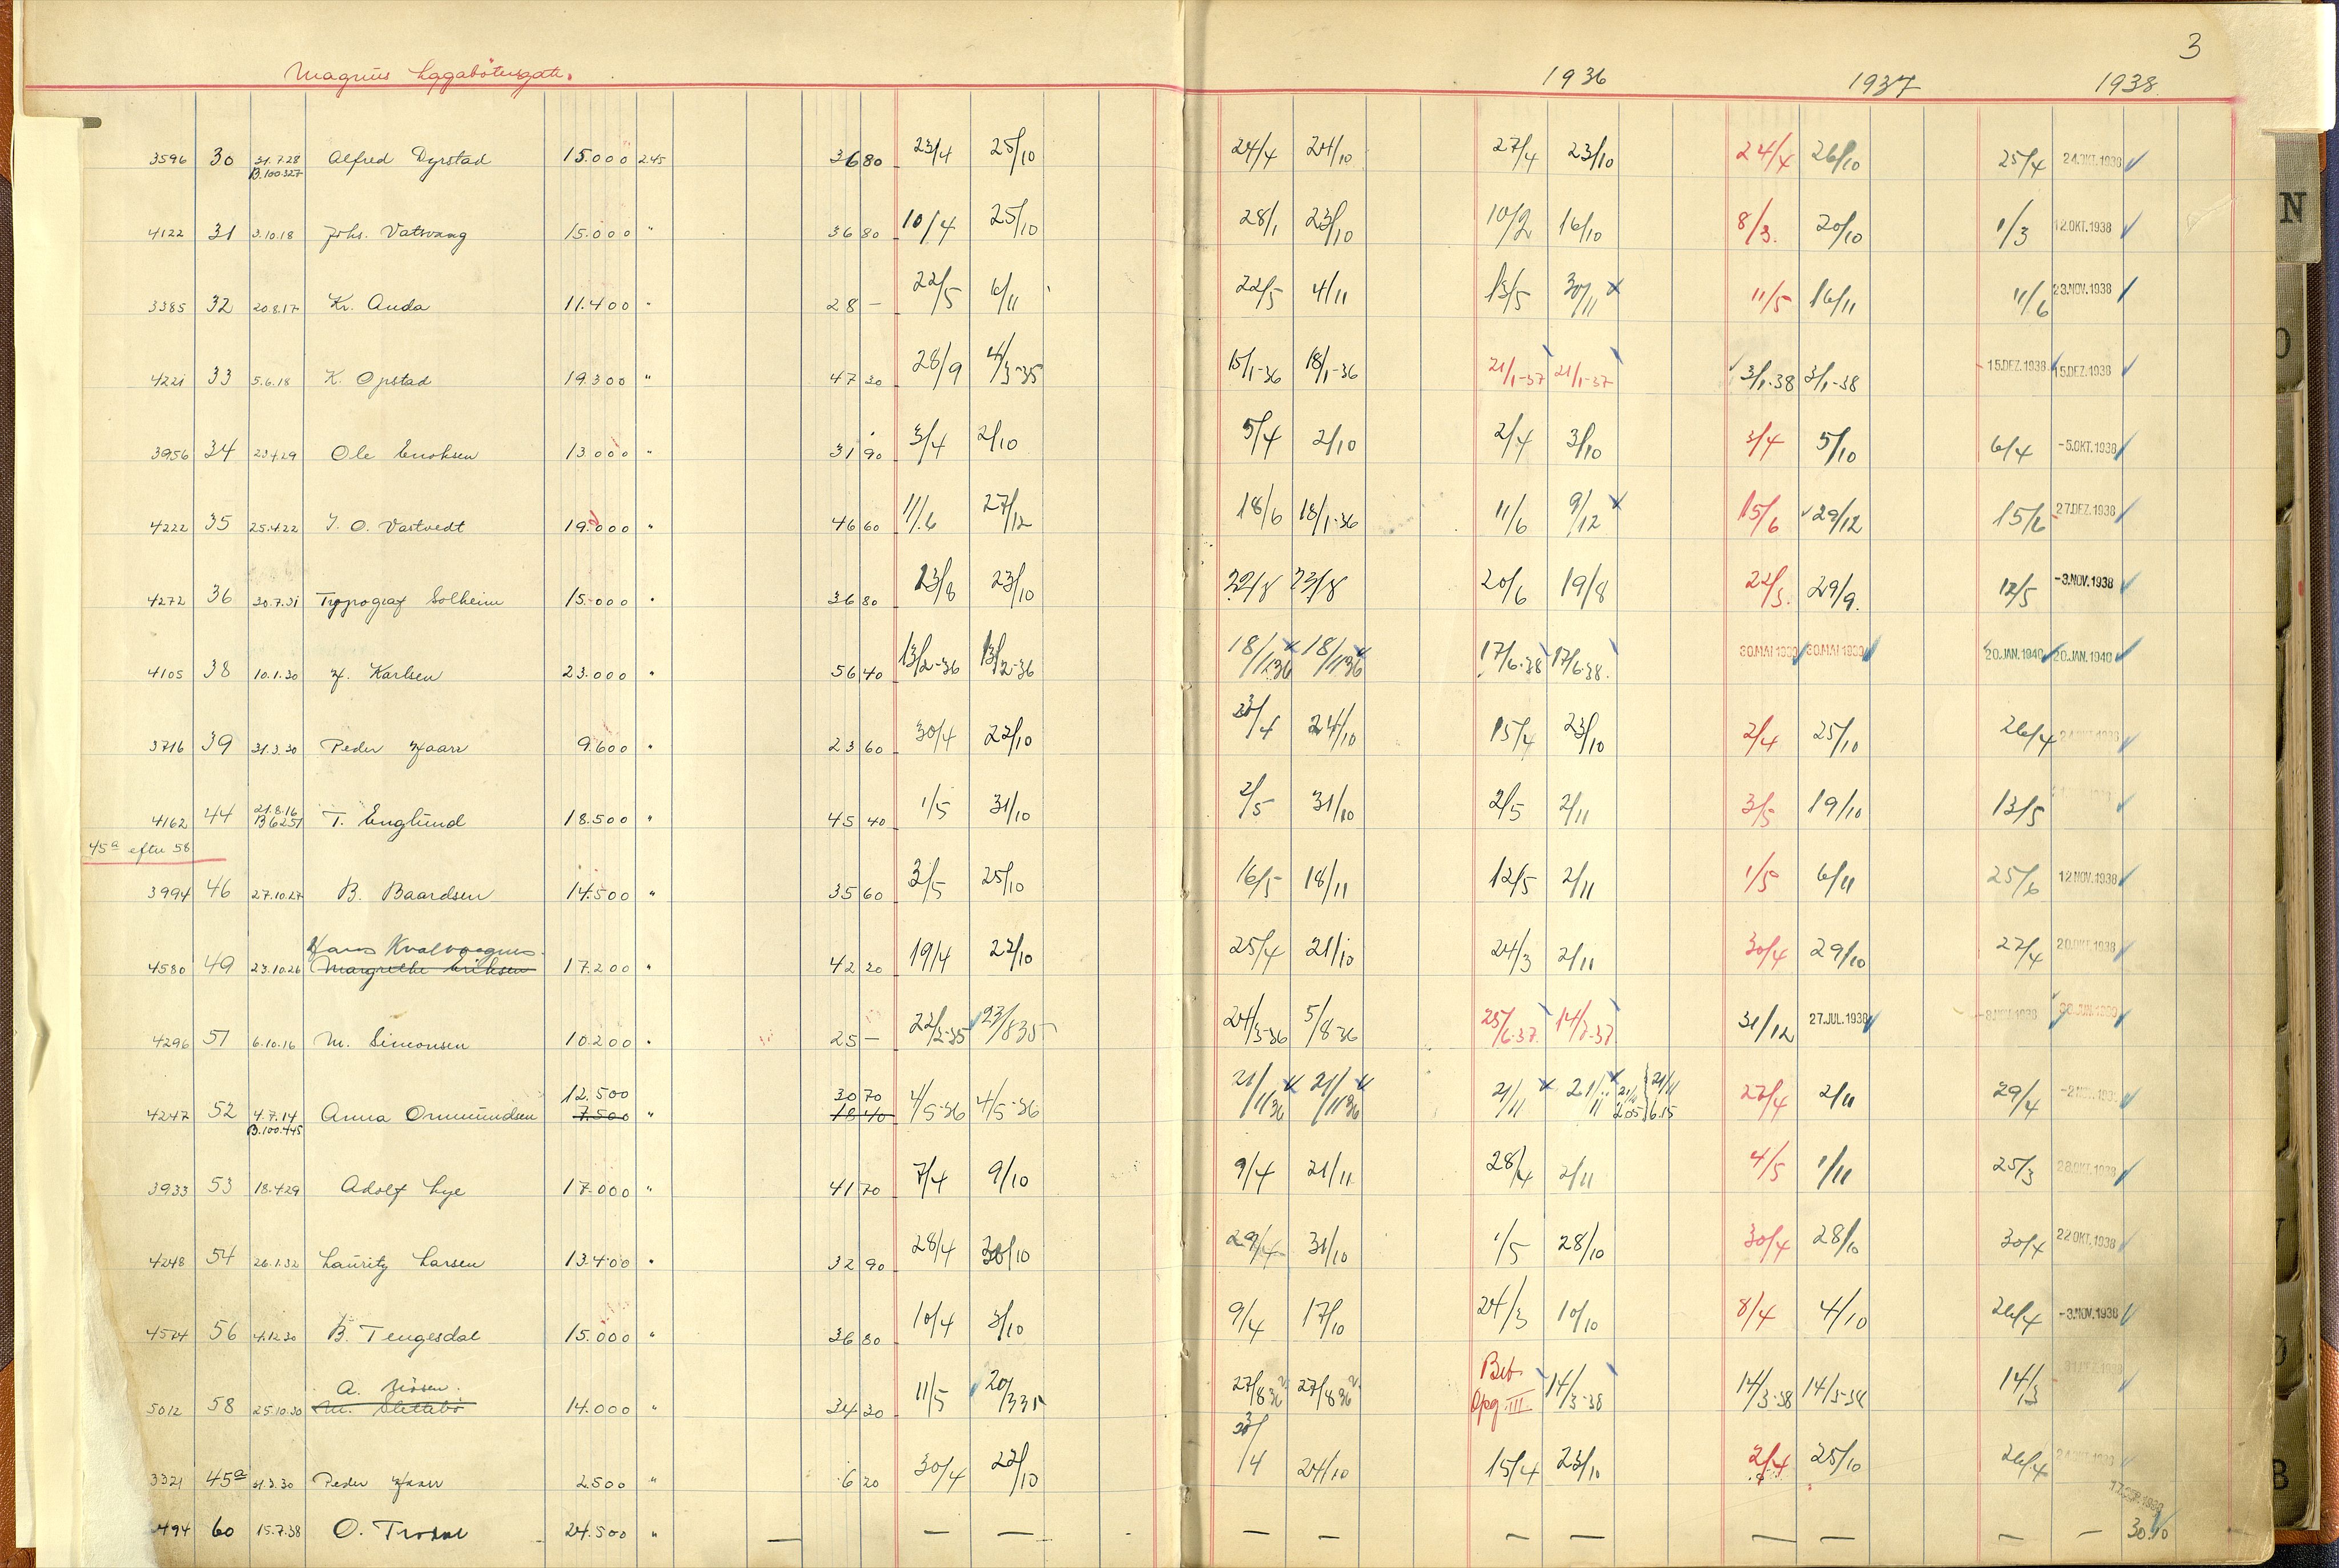 3
Magnus Lagabøtersgate.
1936 1937 1938
3596 30 31.7.28 Alfred Dyrstad 15.000 2.45 36 80 23/4 25/10 24/4 24/10 27/4 23/10 24/4 26/10 25/4 24.OKT.1938
B.100.327
4122 31 3.10.18 Johs. Vatsvaag 15.000 " 36 80 10/4 25/10 28/1 23/10 10/2 16/10 8/3. 20/10 1/3 12.OKT.1938
3385 32 20.8.17 Kr. Auda 11.400 " 28 — 22/5 6/11 22/5 4/11 13/5 30/11 x 11/5 16/11 11/6 23.NOV.1938
4221 33 5.6.18 K. Opstad 19.300 " 47 30 28/9 4/3-35 15/1-36 18/1-36 21/1-37 21/1-37 3/1-38 3/1-38 15.DEZ.1938 15.DEZ.1938
3956 34 23.4.29 Ole Enoksen 13.000 " 31 90 3/4 2/10 5/4 2/10 2/4 3/10 3/4 5/10 6/4 -5.OKT.1938
4222 35 25.4.22 T. O. Vastvedt 19.000 " 46 60 11/6 27/12 18/6 18/1-36 11/6 9/12 x 15/6 29/12 15/6 27.DEZ.1938
4272 36 30.7.31 Typograf Solheim 15.000 " 36 80 23/8 23/10 22/8 23/8 20/6 19/8 22/3. 29/9. 12/5 -3.NOV.1938
4105 38 10.1.30 H. Karlsen 23.000 " 56 40 13/2-36 13/2-36 18/1136 x 18/1136 x 17/6-38 17/6-38. 30.MAI 1939 30.MAI 1939 20.JAN.1940 20.JAN.1940
3716 39 31.3.30 Peder Haarr 9.600 " 23 60 30/4 22/10 23/4 24/10 15/4 23/10 2/4 25/10 26/4
4162 44 21.8.16 T. Englund 18.500 " 45 40 1/5 31/10 2/5 31/10 2/5 2/11 3/5 19/10 13/5
B 6251
45a efter 58
3994 46 27.10.27 B. Baardsen 14.500 " 35 60 3/5 25/10 16/5 18/11 12/5 2/11 1/5 6/11 25/6 12.NOV.1938
Hans Kvalvaagnes
4580 49 23.10.26 Margrethe Eriksen 17.200 " 42 20 19/4 22/10 25/4 21/10 24/3 2/11 30/4 29/10 27/4 20.OKT.1938
4296 51 6.10.16 M. Simonsen 10.200 " 25 — 22/2-35 23/835 24/3-36 5/8-36 25/6-37 14/7-37 31/12 27.JUL.1938
12.500 30 70
4247 52 4.7.14 Anna Ommundsen 7.500 " 18 40 4/5-36 4/5-36 21/1136 x 21/1136 x 21/11 x 21/11 x 27/4 2/11 29/4
B.100.445
3933 53 18.4.29 Adolf Lye 17.000 " 41 70 7/4 9/10 9/4 21/11 28/4 2/11 4/5 1/11 25/3 28.OKT.1938
4248 54 26.1.32 Lauritz Larsen 13.400 " 32 90 28/4 30/10 29/4 31/10 1/5 28/10 30/4 28/10 30/4 22.OKT.1938
4524 56 4.12.30 B. Tengesdal 15.000 " 36 80 10/4 3/10 9/4 17/10 24/3 10/10 8/4 4/10 26/4 -3.NOV.1938
5012 58 25.10.30 M. Slettebö 14.000 " 34 30 11/5 20/335 27/836 27/836 Opg. III 14/3-38 14/3-38 14/3-38 14/3
3321 45a 31.3.30 Peder Haarr 2.500 " 6 20 30/4 22/10 24/10 15/4 23/10 2/4 25/10 26/4
494 60 15.7.38 O. Trosdal 24.500 " — — — — — — — — — — — 30.10